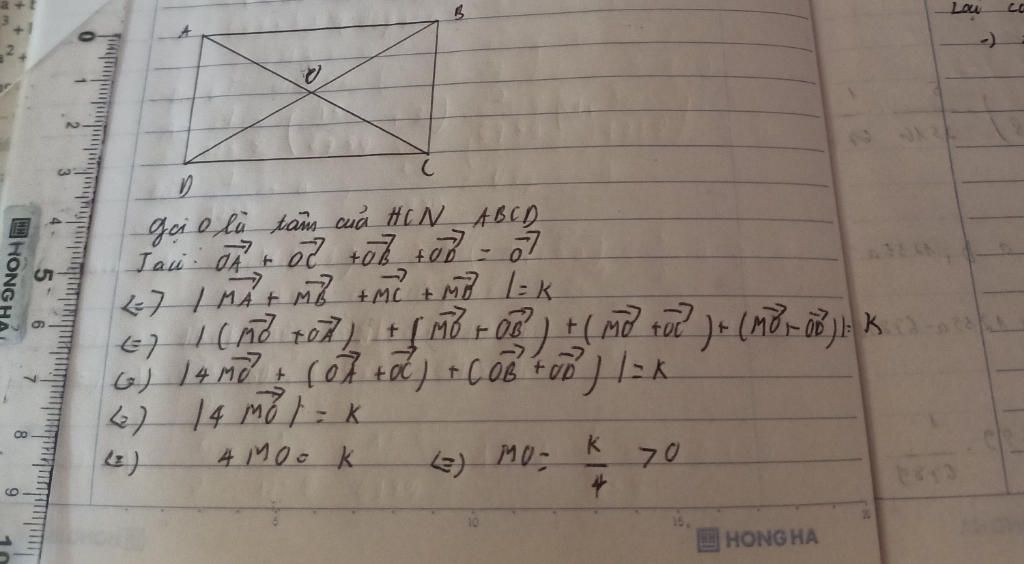 A B
O
D C
Gọi O là tâm của HCN ABCD
Ta có: OA→ + OC→ + OB→ + OD→ = O→
<=> | MA→ + MB→ + MC→ + MD→ | = K
<=> | (MO→ + OA→) + (MO→ + OB→) + (MO→ + OC→) + (MO→ + OD→) | = K
<=> | 4 MO→ + (OA→ + OC→) + (OB→ + OD→) | = K
<=> | 4 MO→ | = K
<=> 4 MO = K <=> MO = K/4 > 0
5 10 15
HONG HA
0 1 2 3 4 5 6 7 8 9 10
HONG HA
Lại